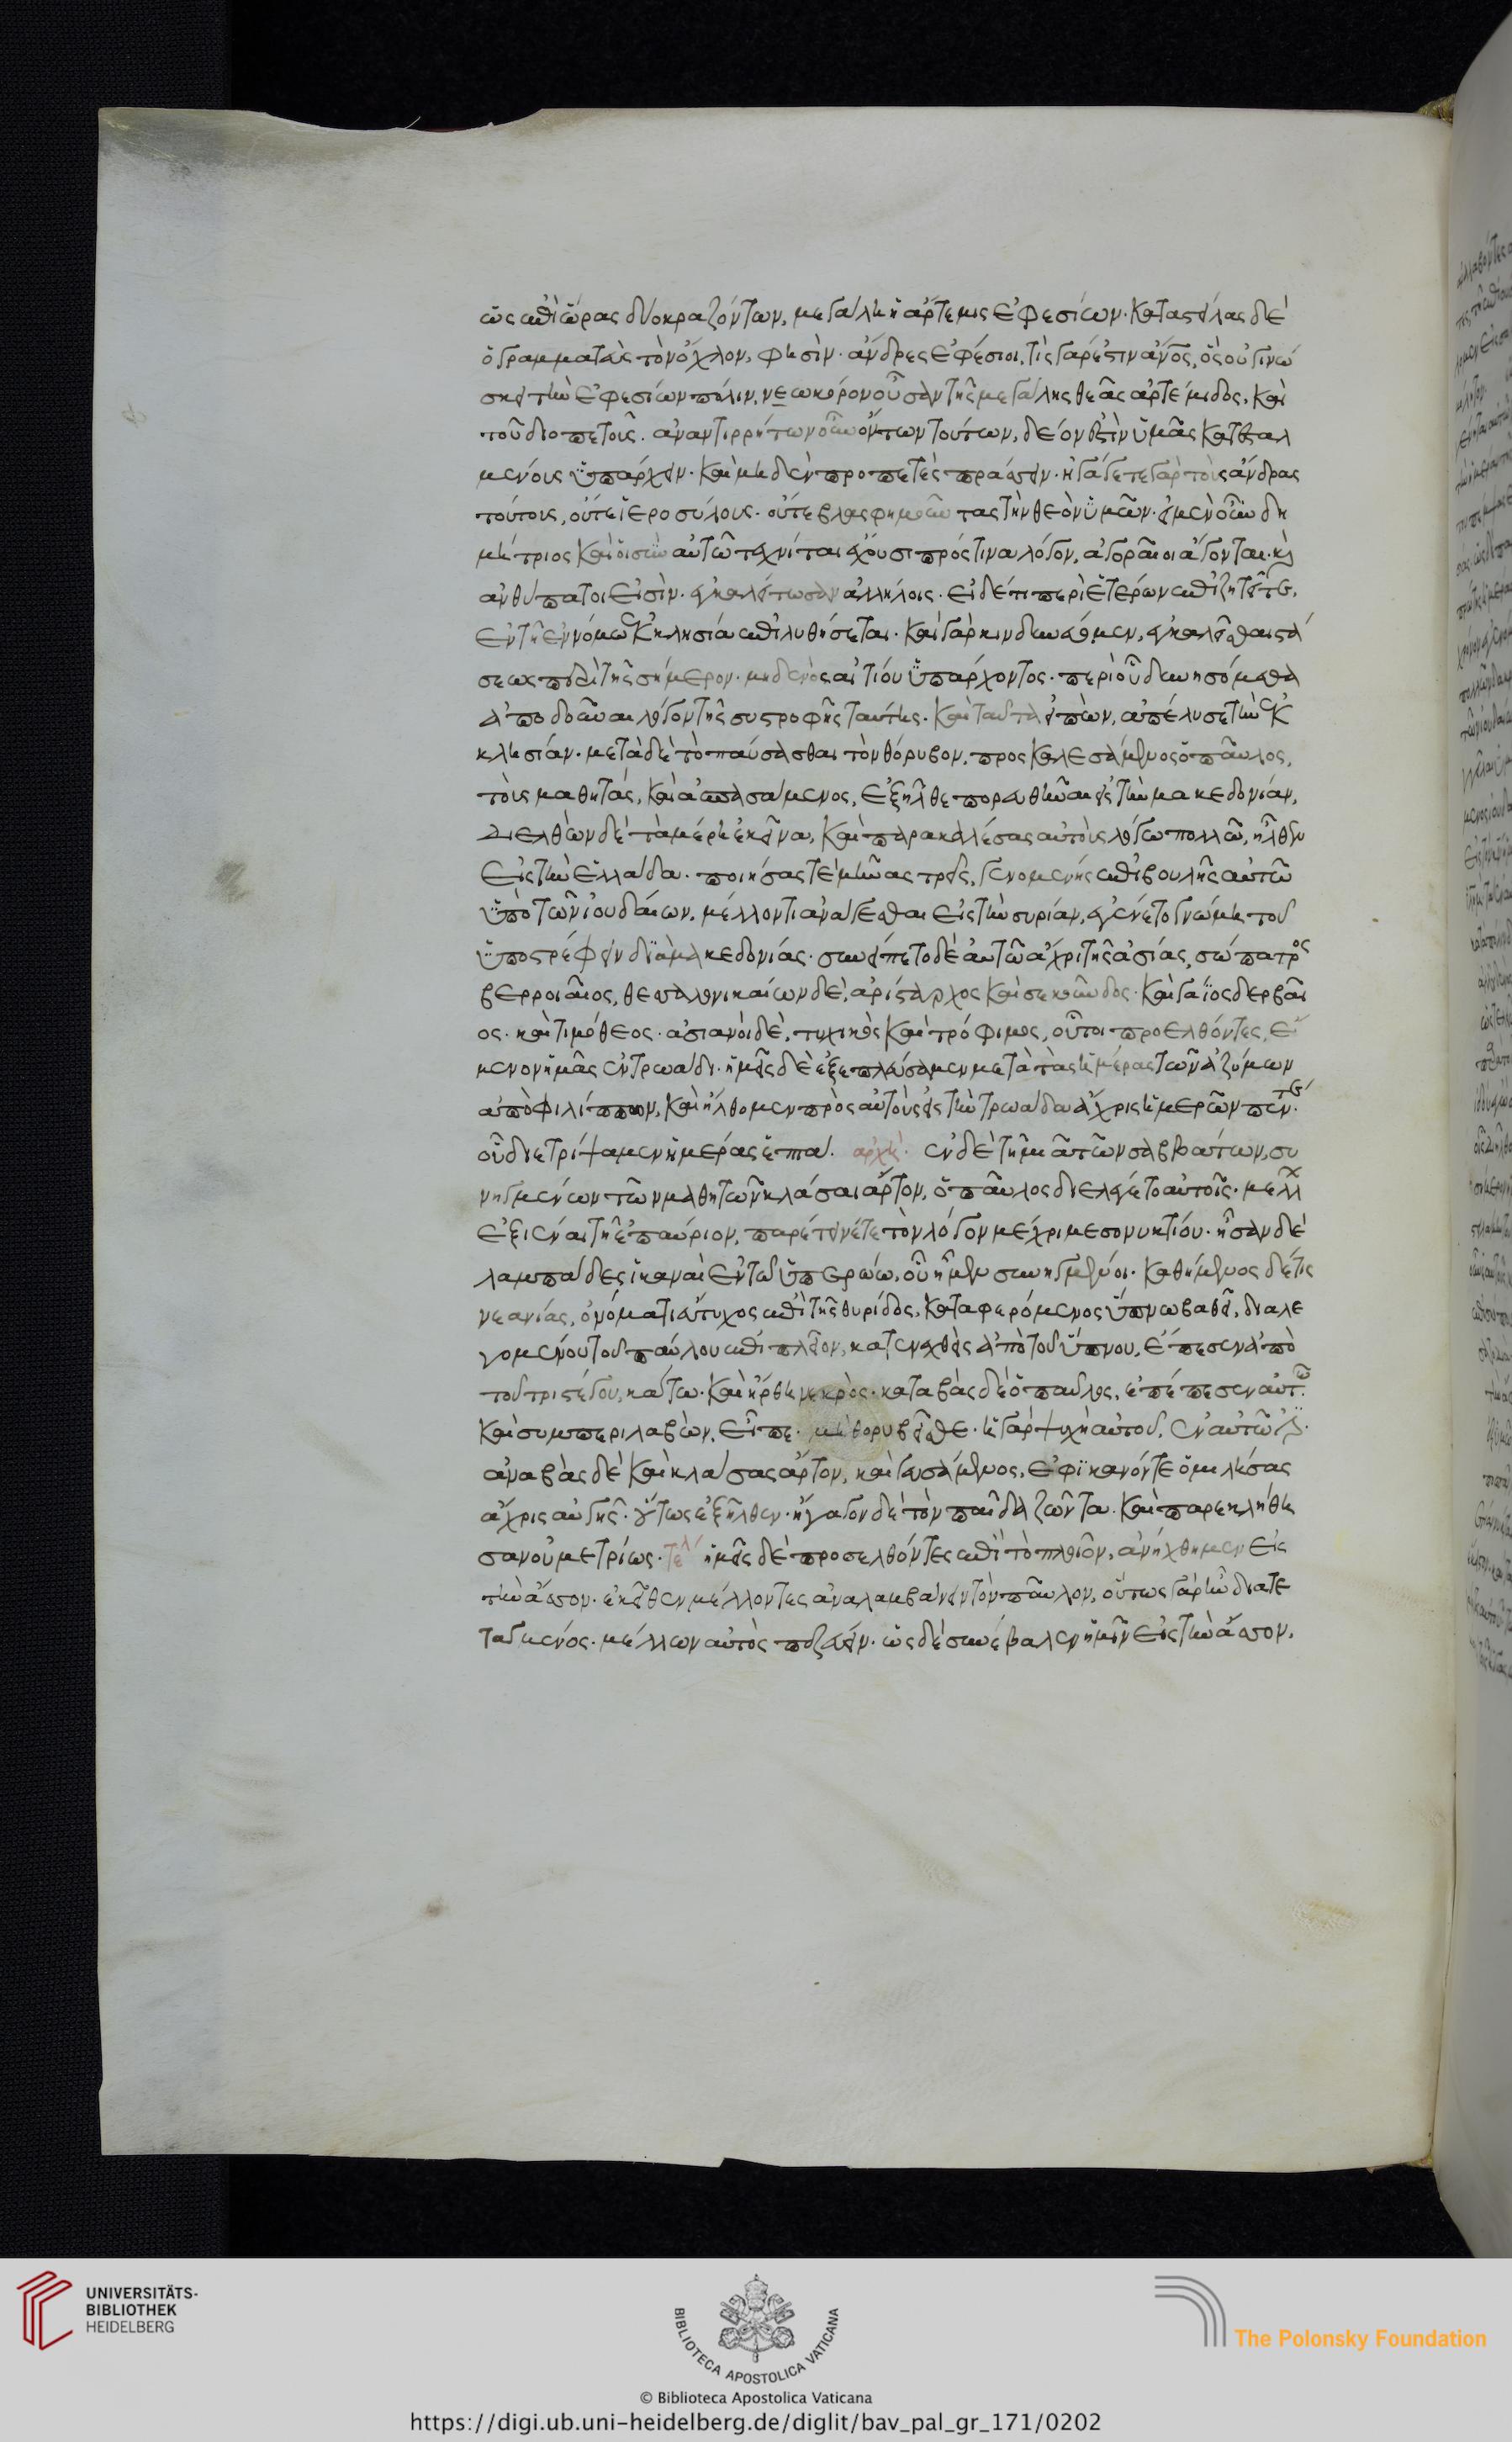 ὡς ἐπὶ ὥρας δύο κραζόντων, μεγάλη ἡ ἄρτεμις ἐφεσίων· καταστείλας δὲ
ὁ γραμματεὺς τὸν ὄχλον, φησὶν· ἄνδρες ἐφέσιοι, τίς γάρ ἐστιν ἄνος, ὃς οὐ γινώ
σκει τὴν ἐφεσίων πόλιν, νεωκόρον οὖσαν τῆς μεγάλης θεᾶς ἀρτέμιδος, καὶ
τοῦ διοπετοῦς. ἀναντιρρήτων οὖν ὄντων τούτων, δέον ἐστὶν ὑμᾶς κατεσταλ
μένους ὑπάρχειν· καὶ μηδὲν προπετὲς πράσσειν· ἠγάγετε γὰρ τοὺς ἄνδρας
τούτους, οὔτε ἱεροσύλους· οὔτε βλασφημοῦντας τὴν θεὸν ὑμῶν· εἰ μὲν οὖν δη
μήτριος καὶ οἱ σὺν αὐτῷ τεχνίται ἔχουσι πρός τινα λόγον, ἀγοραῖοι ἄγονται· καὶ
ἀνθύπατοι εἰσὶν· ἐγκαλείτωσαν ἀλλήλοις· εἰ δέ τι περὶ ἑτέρων ἐπιζητεῖτε,
ἐν τῇ ἐννόμω ἐκκλησία ἐπιλυθήσεται· καὶ γὰρ κινδυνεύομεν, ἐγκαλεῖσθαι στά
σεως περὶ τῆς σήμερον· μηδενὸς αἰτίου ὑπάρχοντος· περὶ οὗ δυνησόμεθα
ἀποδοῦναι λόγον τῆς συστροφῆς ταύτης· καὶ ταῦτα εἰπὼν, ἀπέλυσε τὴν ἐκ
κλησίαν· μετὰ δὲ τὸ παύσασθαι τὸν θόρυβον, προσκαλεσάμενος ὁ παῦλος,
τοὺς μαθητάς, καὶ ἀσπασάμενος, ἐξῆλθε πορευθῆναι εἰς τὴν μακεδονίαν,
διελθὼν δὲ τὰ μέρη ἐκεῖνα, καὶ παρακαλέσας αὐτοὺς λόγω πολλῶ, ἦλθεν
εἰς τὴν ἑλλάδα· ποιήσας τε μῆνας τρεῖς, γενομένης ἐπιβουλῆς αὐτῶ
ὑπὸ τῶν ἰουδαίων, μέλλοντι ἀνάγεσθαι εἰς τὴν συρίαν, ἐγένετο γνώμη τοῦ
ὑποστρέφειν διὰ μακεδονίας· συνείπετο δὲ αὐτῶ ἄχρι τῆς ἀσίας, σώπατρος
βερροιαῖος, θεσσαλονικαίων δὲ, ἀρίσταρχος καὶ σεκοῦνδος· καὶ γάϊος δερβαῖ
ος· καὶ τιμόθεος· ἀσιανοὶ δὲ, τυχικὸς καὶ τρόφιμος, οὗτοι προελθόντες, ἔ
μενον ἡμᾶς ἐν τρωάδι· ἡμεῖς δὲ ἐξεπλεύσαμεν μετὰ τὰς ἡμέρας τῶν ἀζύμων
ἀπὸ φιλίππων, καὶ ἤλθομεν πρὸς αὐτοὺς εἰς τὴν τρωάδα ἄχρις ἡμερῶν πέντε·
οὗ διετρίψαμεν ἡμέρας ἑπτά. ἀρχὴ· ἐν δὲ τῇ μιᾶ τῶν σαββάτων, συ
νηγμένων τῶν μαθητῶν κλάσαι ἄρτον, ὁ παῦλος διελέγετο αὐτοῖς· μέλλ
ἐξιέναι τῇ ἐπαύριον, παρέτεινέ τε τὸν λόγον μέχρι μεσονυκτίου· ἦσαν δὲ
λαμπάδες ἱκαναὶ ἐν τῶ ὑπερώω, οὗ ἦμεν συνηγμένοι· καθήμενος δέ τις
νεανίας, ὀνόματι εὔτυχος ἐπὶ τῆς θυρίδος, καταφερόμενος ὕπνω βαθεῖ, διαλε
γομένου τοῦ παύλου ἐπὶ πλεῖον, κατενεχθεὶς ἀπὸ τοῦ ὕπνου, ἔπεσεν ἀπὸ
τοῦ τριστέγου, κάτω· καὶ ἤρθη νεκρὸς· καταβὰς δὲ ὁ παῦλος, ἐπέπεσεν αὐτῶ
καὶ συμπεριλαβὼν, εἶπε· μὴ θορυβεῖσθε· ἡ γὰρ ψυχὴ αὐτοῦ, ἐν αὐτῶ ἐστιν·
ἀναβὰς δὲ καὶ κλάσας ἄρτον, καὶ γευσάμενος, ἐφ ἱκανόν τε ὁμιλήσας
ἄχρις αὐγῆς· οὕτως ἐξῆλθεν· ἤγαγον δὲ τὸν παῖδα ζῶντα· καὶ παρεκλήθη
σαν οὐ μετρίως· τέλ ἡμεῖς δὲ προσελθόντες ἐπὶ τὸ πλοῖον, ἀνήχθημεν εἰς
τὴν ἄσσον· ἐκεῖθεν μέλλοντες ἀναλαμβάνειν τὸν παῦλον, οὕτως γὰρ ἦν διατε
ταγμένος· μέλλων αὐτὸς πεζεύειν· ὡς δὲ συνέβαλεν ἡμῖν εἰς τὴν ἄσσον,
UNIVERSITÄTS-
BIBLIOTHEK
HEIDELBERG
BIBLIOTECA APOSTOLICA VATICANA
The Polonsky Foundation
© Biblioteca Apostolica Vaticana
https://digi.ub.uni-heidelberg.de/diglit/bav_pal_gr_171/0202